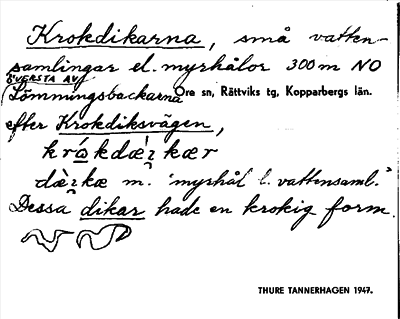 Krokdikarna, små vatten-
samlingar el. myrhålor 300 m NO
ÖVERSTA AV
Lömmingsbackarna Ore sn, Rättviks tg, Kopparbergs län.
efter Krokdiksvägen,
myrhål l. vattensaml."
Dessa dikar hade en krokig form.
THURE TANNERHAGEN 1947.